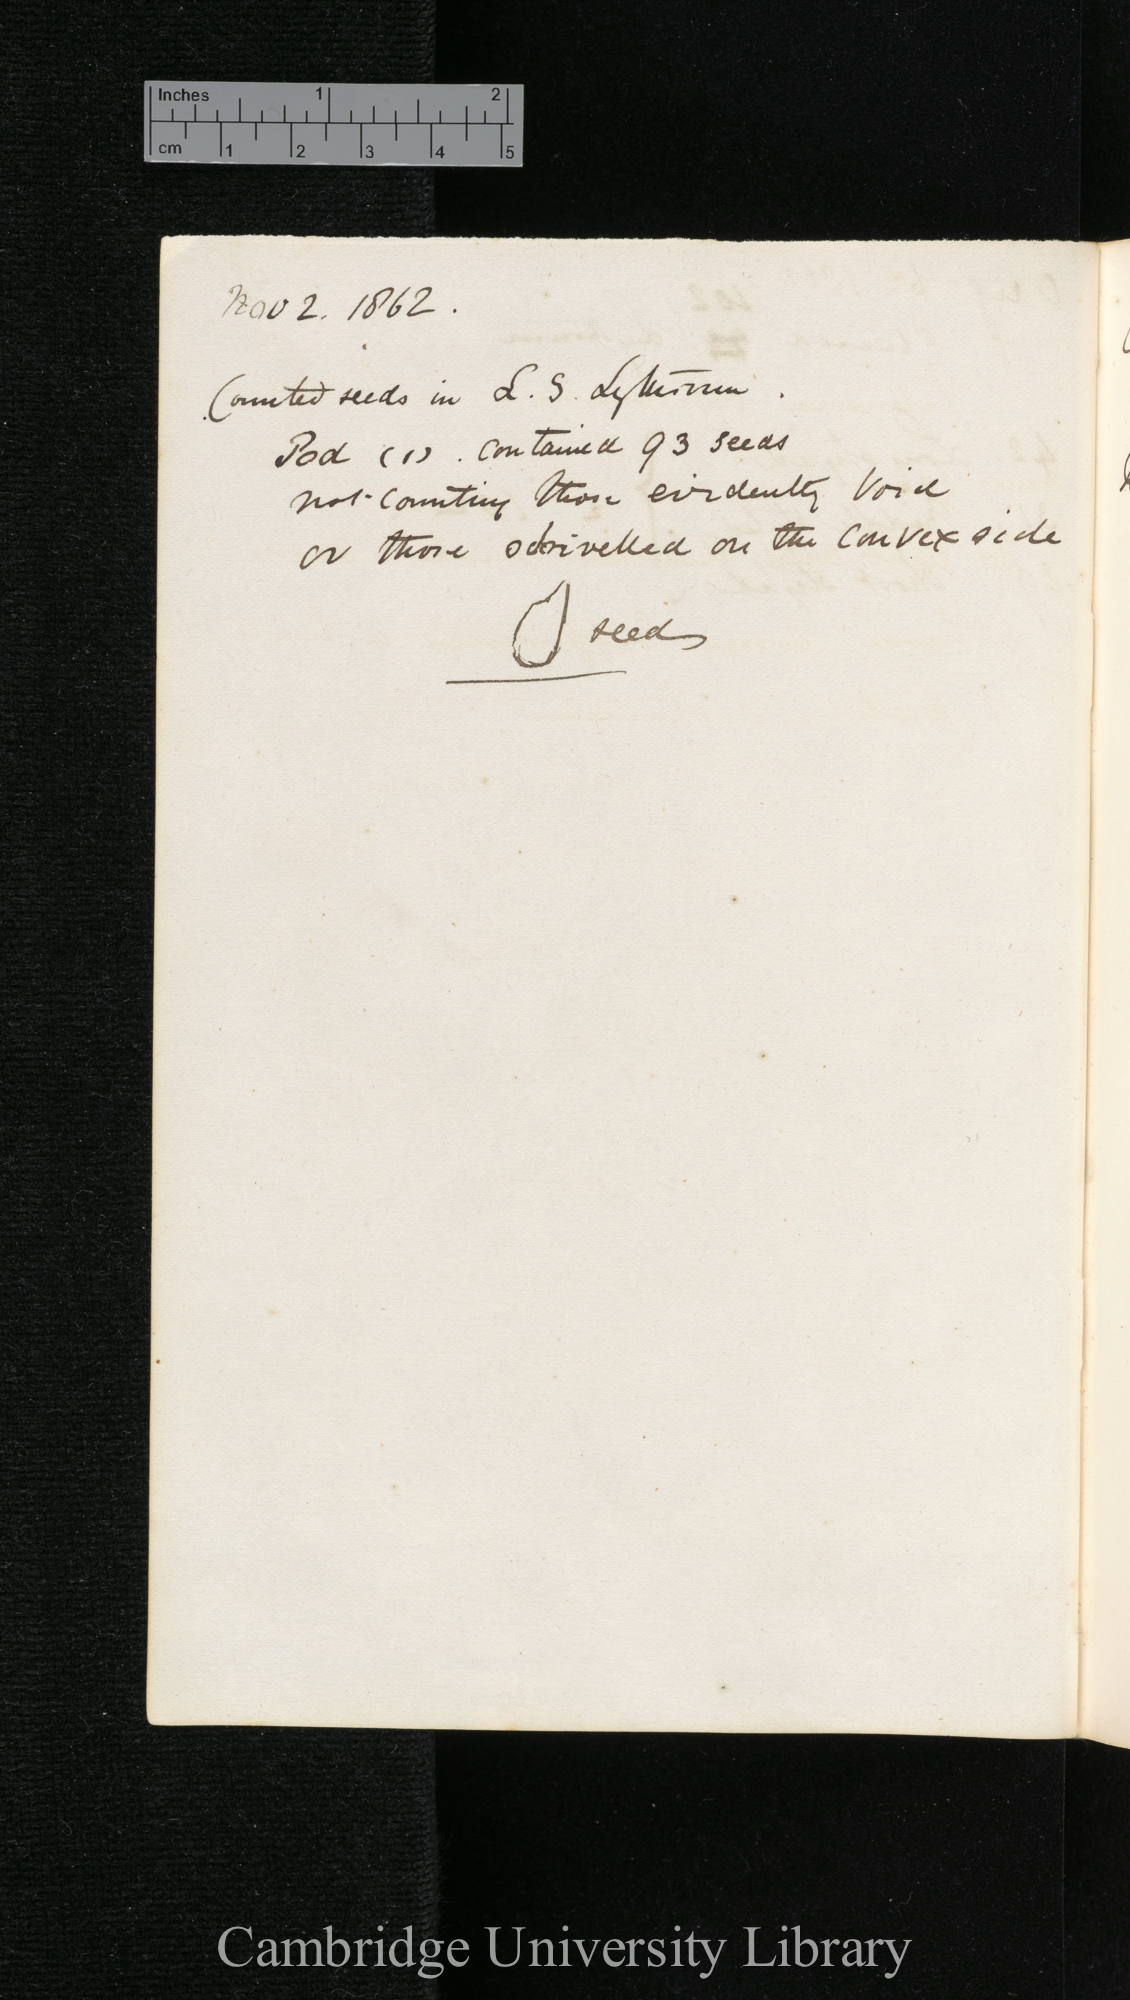 Inches 1 2
cm 1 2 3 4 5
Nov 2. 1862.
Counted seeds in L. S. Lythrum.
Pod (1). contained 93 seeds
not counting those evidently void
or those schrivelled on the convex side
seeds
Cambridge University Library